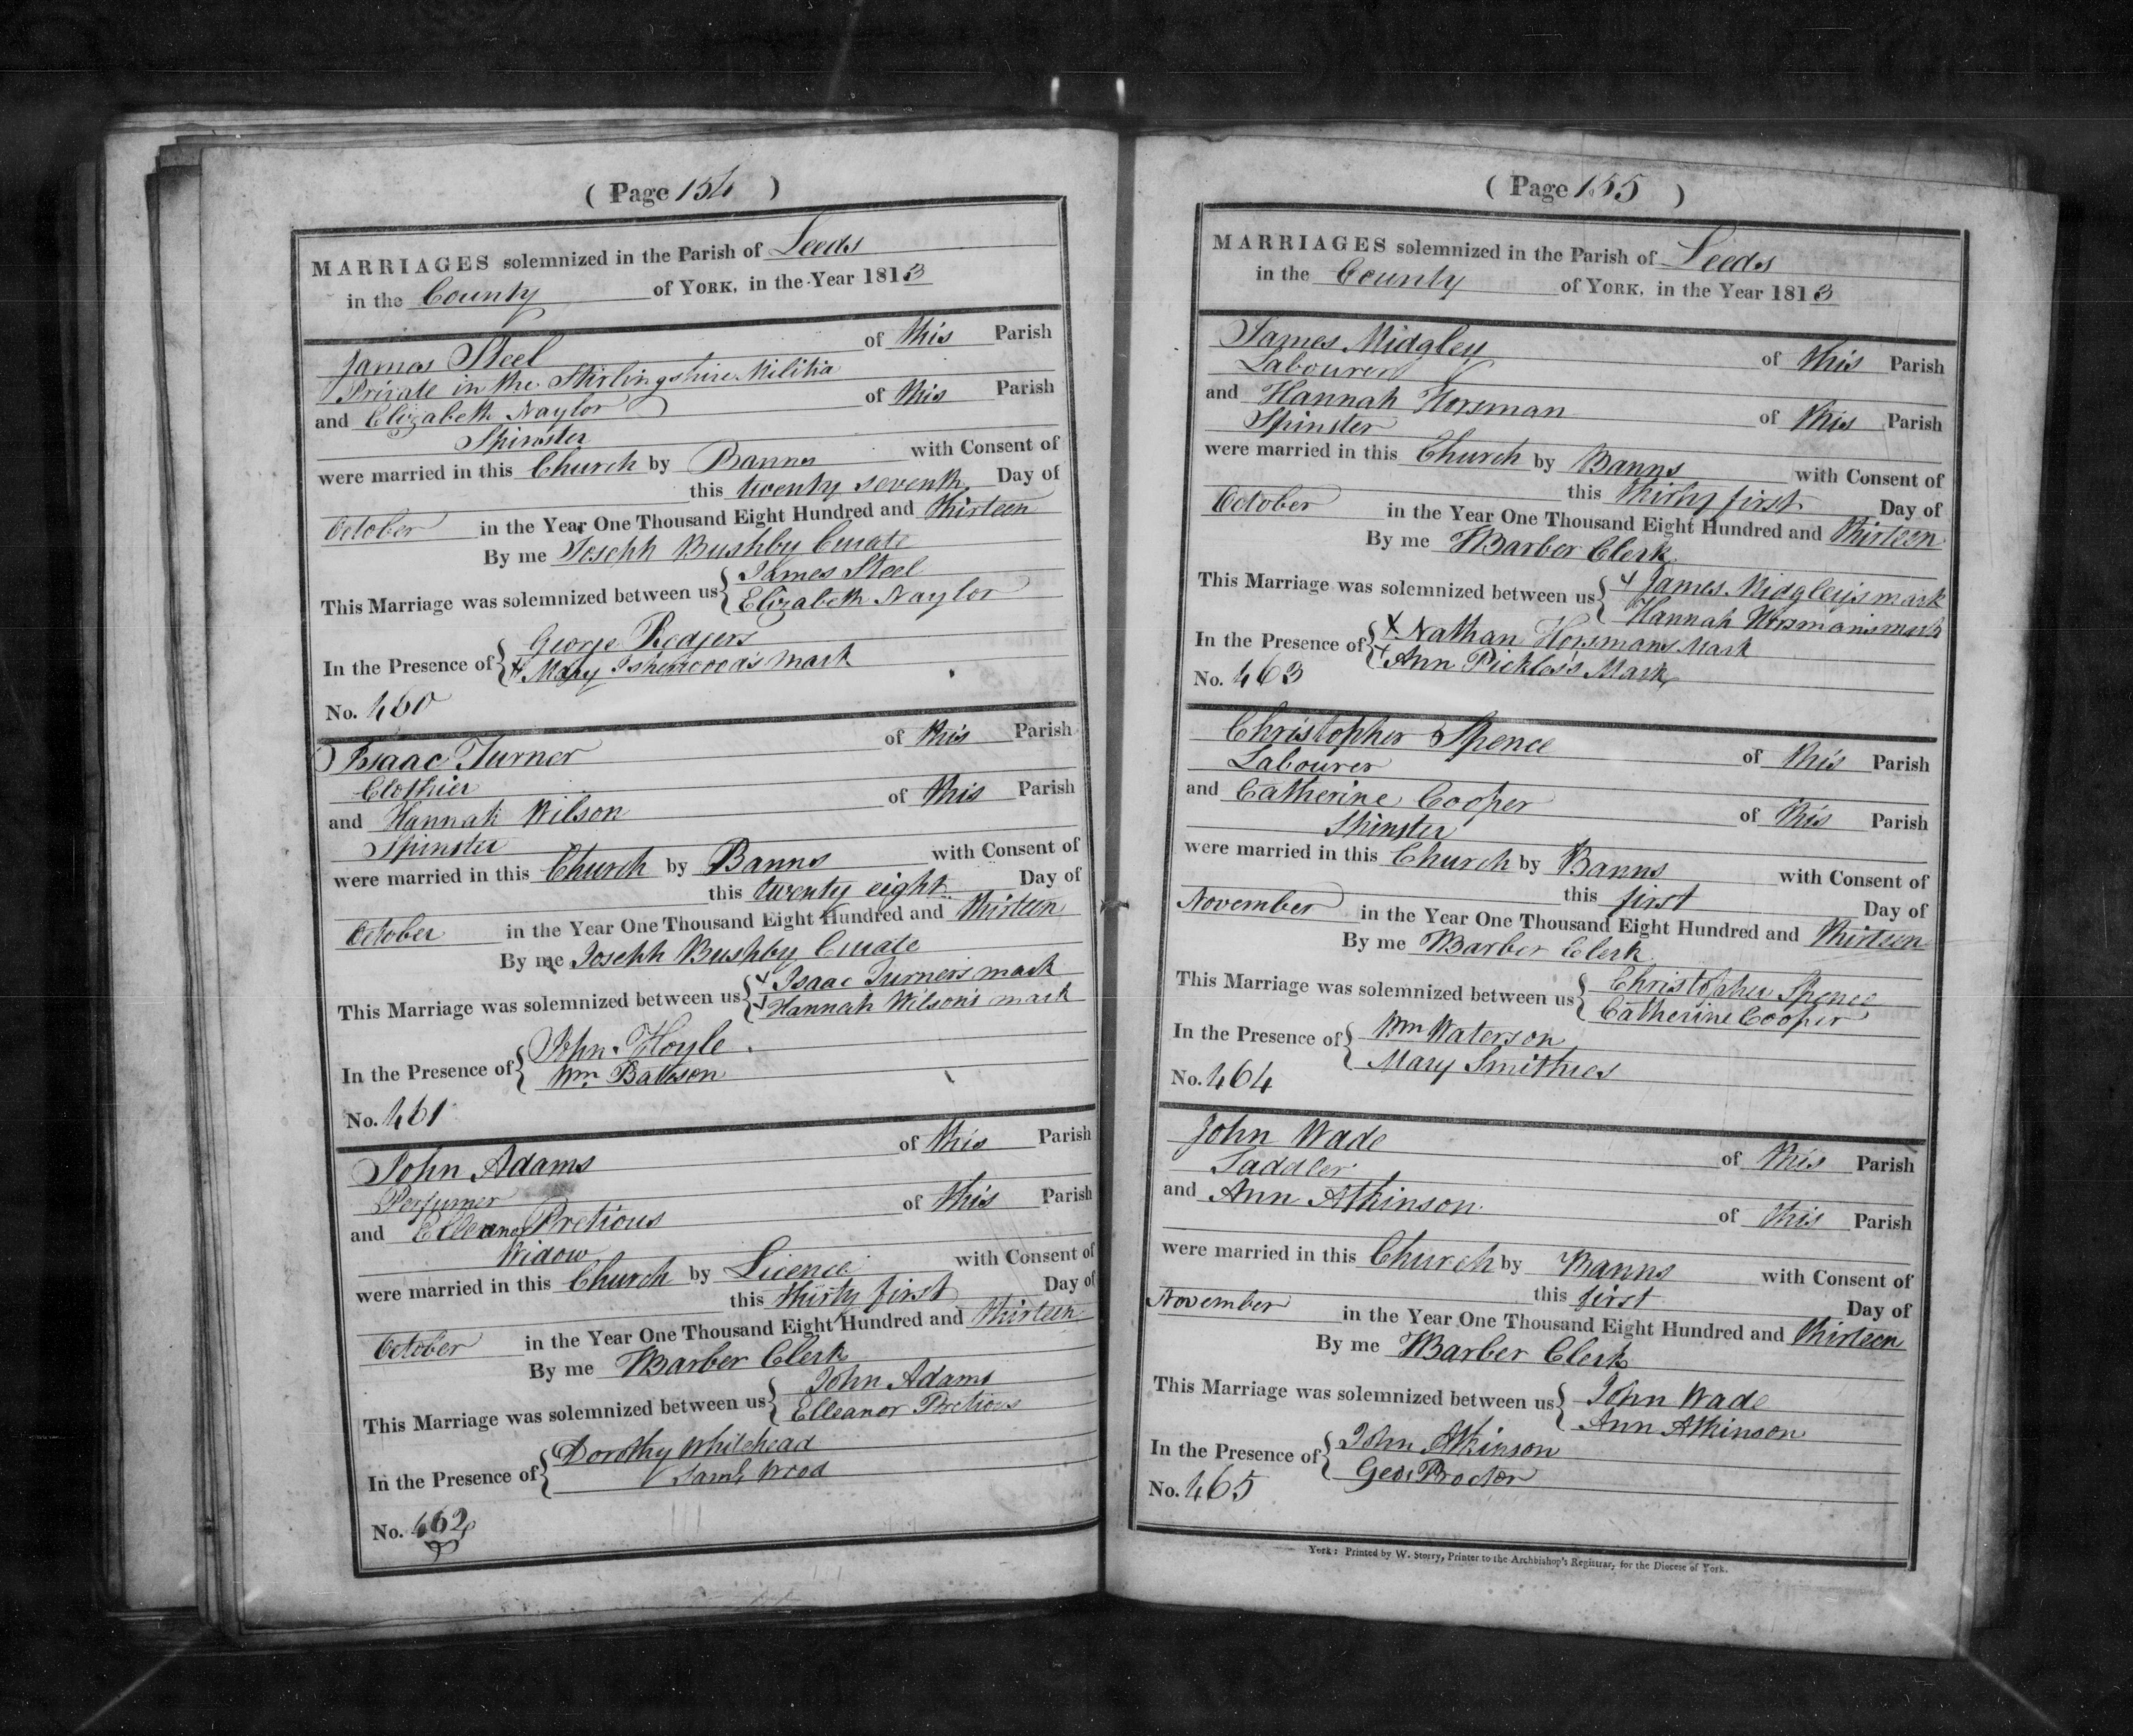 ( Page 154 )
MARRIAGES solemnized in the Parish of Leeds
in the County of YORK, in the Year 1813
James Steel of this Parish
Private in the Stirlingshire Militia
and Elizabeth Naylor of this Parish
Spinster
were married in this Church by Banns with Consent of
this twenty seventh Day of
October in the Year One Thousand Eight Hundred and thirteen
By me Joseph Bushby Curate
This Marriage was solemnized between us { James Steel
Elizabeth Naylor
In the Presence of { George Rodgers
X Mary Isherwood's mark
No. 460
Isaac Turner of this Parish
Clothier
and Hannah Wilson of this Parish
Spinster
were married in this Church by Banns with Consent of
this twenty eight Day of
October in the Year One Thousand Eight Hundred and thirteen
By me Joseph Bushby Curate
This Marriage was solemnized between us { X Isaac Turner's mark
X Hannah Wilson's mark
In the Presence of { John Hoyle
Wm
No. 461
John Adams of this Parish
Perfumer
and Elleanor Pretious of this Parish
Widow
were married in this Church by Licence with Consent of
this thirty first Day of
October in the Year One Thousand Eight Hundred and thirteen
By me WBarber Clerk
This Marriage was solemnized between us { John Adams
Elleanor Pretious
In the Presence of { Dorothy Whitehead
Saml Wood
No. 462
( Page 155 )
MARRIAGES solemnized in the Parish of Leeds
in the County of YORK, in the Year 1813
James Midgley of this Parish
Labourer
and Hannah Horsman of this Parish
Spinster
were married in this Church by Banns with Consent of
this thirty first Day of
October in the Year One Thousand Eight Hundred and thirteen
By me WBarber Clerk
This Marriage was solemnized between us { X James Midgley's mark
Hannah Horsman's mark
In the Presence of { X Nathan Horsman's Mark
X Ann Pickles's Mark
No. 463
Christopher Spence of this Parish
Labourer
and Catherine Cooper of this Parish
Spinster
were married in this Church by Banns with Consent of
this first Day of
November in the Year One Thousand Eight Hundred and thirteen
By me WBarber Clerk
This Marriage was solemnized between us { Christopher Spence
Catherine Cooper
In the Presence of { Wm Waterson
Mary Smithies
No. 464
John Wade of this Parish
Saddler
and Ann Atkinson of this Parish
were married in this Church by Banns with Consent of
this first Day of
November in the Year One Thousand Eight Hundred and thirteen
By me WBarber Clerk
This Marriage was solemnized between us { John Wade
Ann Atkinson
In the Presence of { John Atkinson
Geo. Procter
No. 465
York: Printed by W. Storry, Printer to the Archbishop's Registrar, for the Diocese of York.